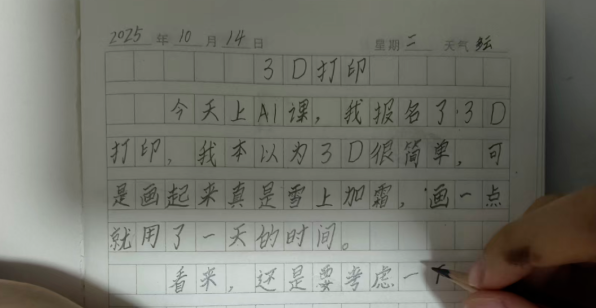 2025 年 10 月 14 日 星期 二 天气
3 D 打印
今天上AI课，我报名了3D
打印，我本以为3D很简单，可
是画起来真是雪上加霜，画一点
就用了一天的时间。
看来，还是要考虑一下